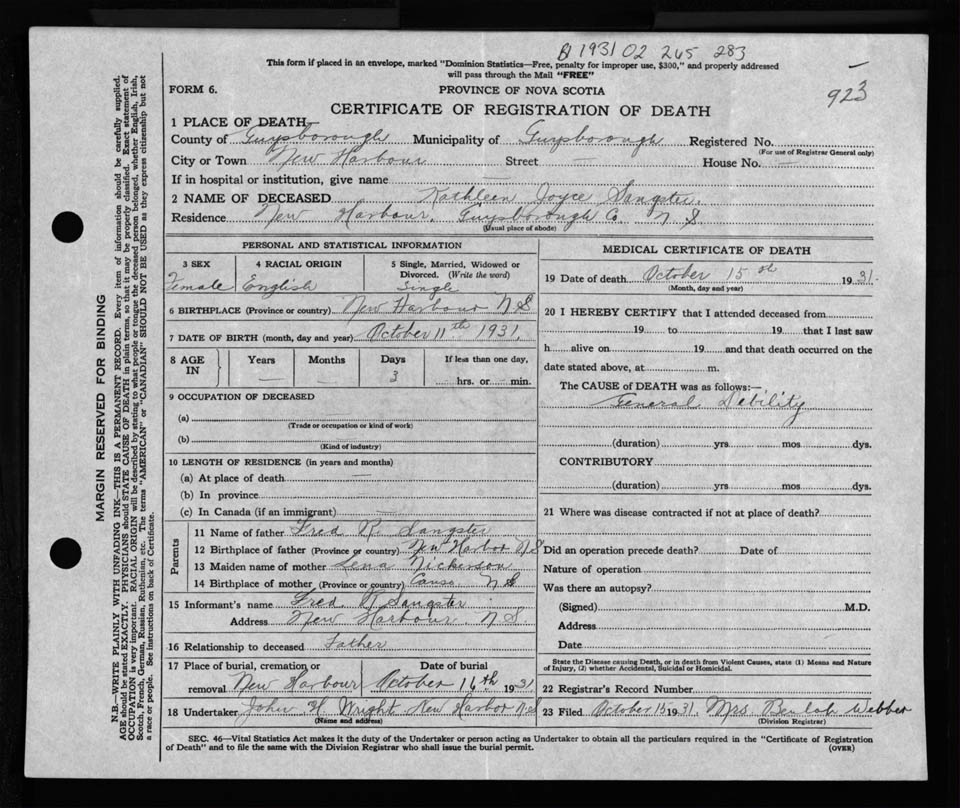 B 1931 02 265 283
This form if placed in an envelope, marked "Dominion Statistics—Free, penalty for improper use, $300," and properly addressed
will pass through the Mail "FREE"
923
FORM 6.
PROVINCE OF NOVA SCOTIA
CERTIFICATE OF REGISTRATION OF DEATH
1 PLACE OF DEATH
County of Guysborough Municipality of Guysboough Registered No.
(For use of Registrar General only)
City or Town New Harbour Street — House No. —
If in hospital or institution, give name —
2 NAME OF DECEASED Kathleen Joyce Sangster
Residence New Harbour, Guysborough Co. N S
(Usual place of abode)
PERSONAL AND STATISTICAL INFORMATION
3 SEX
Female
4 RACIAL ORIGIN
English
5 Single, Married, Widowed or
Divorced. (Write the word)
Single
6 BIRTHPLACE (Province or country) New Harbour N S
7 DATE OF BIRTH (month, day and year) October 11th 1931.
8 AGE IN
Years —
Months —
Days 3
If less than one day,
hrs. or min.
9 OCCUPATION OF DECEASED
(a)
(Trade or occupation or kind of work)
(b)
(Kind of industry)
10 LENGTH OF RESIDENCE (in years and months)
(a) At place of death —
(b) In province
(c) In Canada (if an immigrant) —
Parents
11 Name of father Fred R. Sangster
12 Birthplace of father (Province or country) New Harbor N S
13 Maiden name of mother Lena Nickerson
14 Birthplace of mother (Province or country) Canso N S
15 Informant's name Fred R Sangster
Address New Harbour N S.
16 Relationship to deceased Father
17 Place of burial, cremation or
removal New Harbour
Date of burial
October 16th 1931
18 Undertaker John H Wright New Harbor N S
(Name and address)
MEDICAL CERTIFICATE OF DEATH
19 Date of death October 15th 1931.
(Month, day and year)
20 I HEREBY CERTIFY that I attended deceased from
19 to 19 that I last saw
h alive on 19 and that death occurred on the
date stated above, at m.
The CAUSE of DEATH was as follows:—
General Debility
(duration) yrs mos dys.
CONTRIBUTORY
(duration) yrs mos dys.
21 Where was disease contracted if not at place of death?
Did an operation precede death? Date of
Nature of operation
Was there an autopsy?
(Signed) M.D.
Address
Date
State the Disease causing Death, or in death from Violent Causes, state (1) Means and Nature
of Injury, (2) whether Accidental, Suicidal or Homicidal.
22 Registrar's Record Number
23 Filed October 15 1931. Mrs. Beulah Webber
(Division Registrar)
SEC. 46—Vital Statistics Act makes it the duty of the Undertaker or person acting as Undertaker to obtain all the particulars required in the "Certificate of Registration
of Death" and to file the same with the Division Registrar who shall issue the burial permit.
(OVER)
MARGIN RESERVED FOR BINDING
N.B.—WRITE PLAINLY WITH UNFADING INK—THIS IS A PERMANENT RECORD. Every item of information should be carefully supplied.
AGE should be stated EXACTLY. PHYSICIANS should STATE CAUSE OF DEATH in plain terms, so that it may be properly classified. Exact statement of
OCCUPATION is very important. RACIAL ORIGIN will be described by stating to what people or tongue the deceased person belonged, whether English, Irish,
Scotch, French, German, Russian, Ruthenian, etc. The terms "AMERICAN" or "CANADIAN" SHOULD NOT BE USED as they express citizenship but not
a race or people. See instructions on back of Certificate.